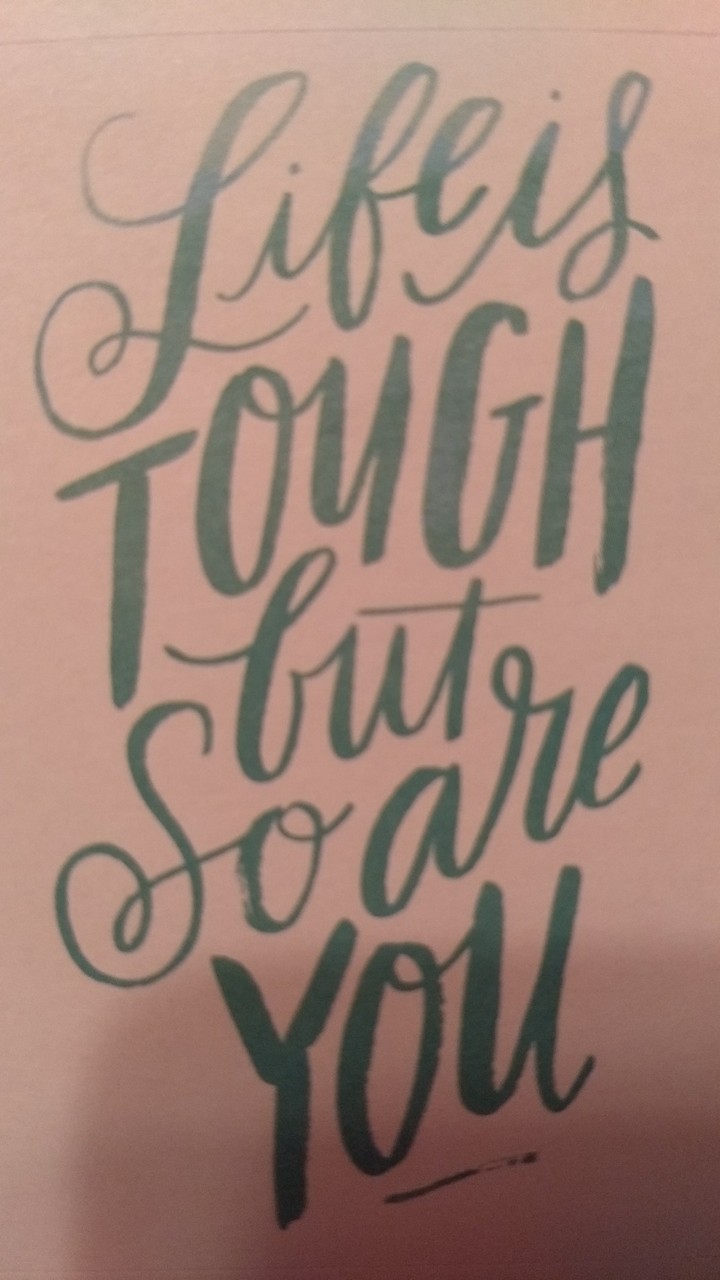 Life is
TOUGH
but
So are
YOU